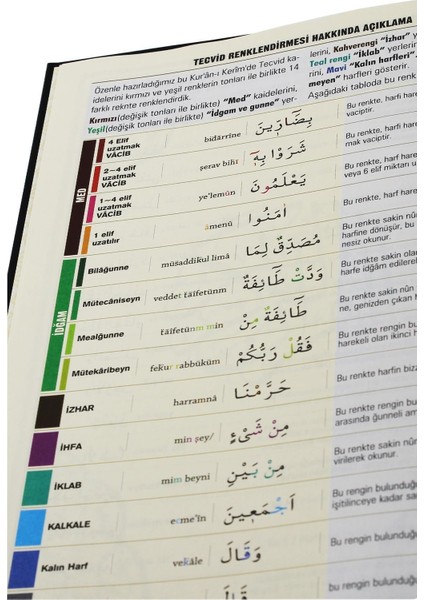 TECVİD RENKLENDİRMESİ HAKKINDA AÇIKLAMA
Özenle hazırladığımız bu Kur'ân-ı Kerîm'de Tecvid ka-
idelerini kırmızı ve yeşil renklerin tonları ile birlikte 14
farklı renkte renklendirdik.
Kırmızı(değişik tonları ile birlikte) "Med" kaidelerini,
Yeşil(değişik tonları ile birlikte) "İdgam ve gunne" yer-
lerini, Kahverengi "İzhar"
Teal rengi "İklab" yerlerin
rini, Mavi "Kalın harfleri"
meyen" harfleri gösterir.
Aşağıdaki tabloda bu renk
MED
4 Elif
uzatmak
VÂCİB
bidârrîne
بِضَٓارّ۪ينَ
Bu renkte, harf hare
vaciptir.
2–4 elif
uzatmak
VÂCİB
şerav bihî
شَرَوْا بِه۪ٓ
Bu renkte, harf hare
mak vaciptir.
1–4 elif
uzatmak
VÂCİB
ye'lemûn
يَعْلَمُونَ
Bu renkte, harf hare
veya 6 elif miktarı u
1 elif
uzatılır
âmenû
اٰمَنُوا
Bu renkte, harf hare
İDĞAM
Bilâğunne
müsaddikul limâ
مُصَدِّقٌ لِمَا
Bu renkte sakin nû
harfine dönüşür, bu
nesiz okunur.
Mütecâniseyn
veddet tâifetünm
وَدَّتْ طَٓائِفَةٌ
Bu renkte sakin olan
harfe idğam edilerek
Mealğunne
tâifetünm min
طَٓائِفَةٌ مِنْ
Bu renkte sakin nûn
ne, genizden çıkan h
Mütekâribeyn
fekur rabbüküm
فَقُلْ رَبُّكُمْ
Bu renkte rengin bu
harekeli olan ikinci h
İZHAR
harramnâ
حَرَّمْنَا
Bu renkte harfin biza
İHFA
min şey/
مِنْ شَىْءٍ
Bu renkte rengin bu
arasında ğunneli am
İKLAB
mim beyni
مِنْ بَيْنِ
Bu renkte sakin nûn
virilerek okunur.
KALKALE
ecme'în
اَجْمَع۪ينَ
Bu rengin bulunduğu
işitilinceye kadar sa
Kalın Harf
vekâle
وَقَالَ
Bu rengin bulunduğu
قَالَ
bu rengin bulunduğu